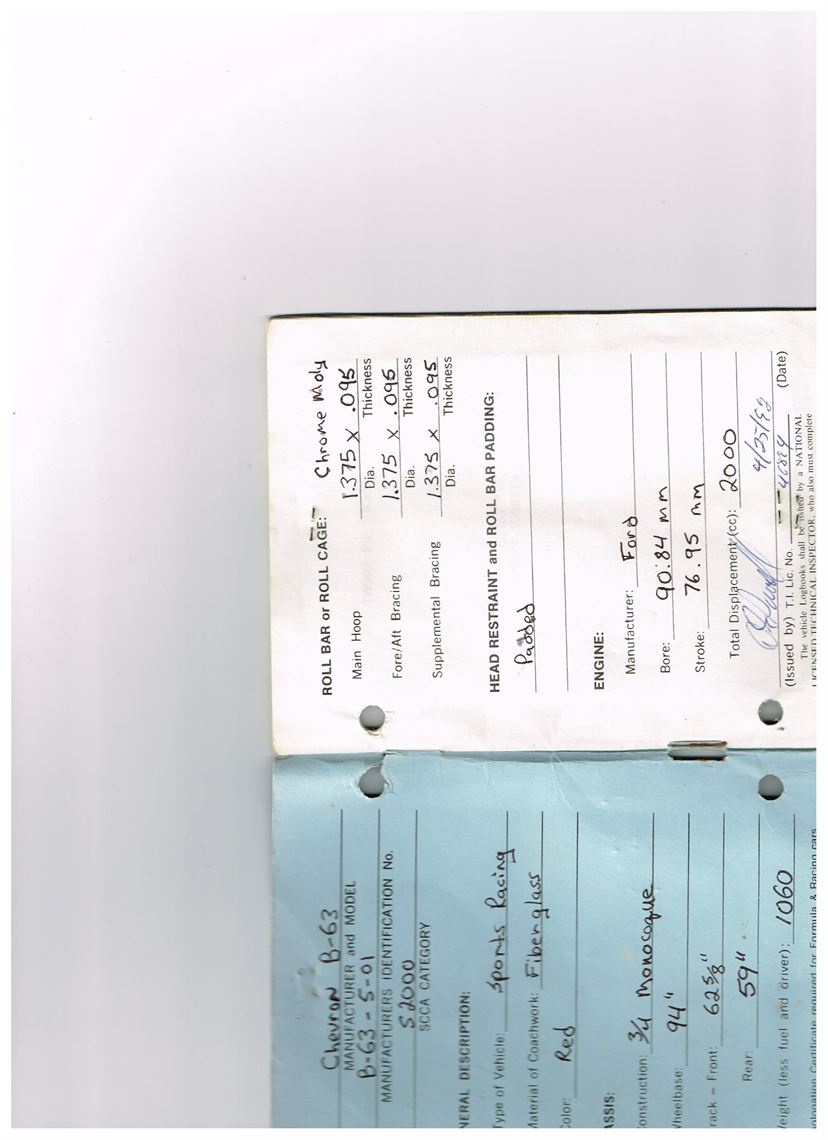 Chevron B-63
MANUFACTURER and MODEL
B-63-5-01
MANUFACTURERS IDENTIFICATION No.
S2000
SCCA CATEGORY
NERAL DESCRIPTION:
Type of Vehicle: Sports Racing
Material of Coachwork: Fiberglass
Color: Red
ASSIS:
onstruction: 3/4 Monocoque
Wheelbase: 94"
rack – Front: 62 5/8"
Rear: 59"
eight (less fuel and driver): 1060
ologation Certificate required for Formula & Racing cars
ROLL BAR or ROLL CAGE: Chrome Moly
Main Hoop 1.375 x .095
Dia. Thickness
Fore/Aft Bracing 1.375 x .095
Dia. Thickness
Supplemental Bracing 1.375 x .095
Dia. Thickness
HEAD RESTRAINT and ROLL BAR PADDING:
Padded
ENGINE:
Manufacturer: Ford
Bore: 90.84 mm
Stroke: 76.95 mm
Total Displacement (cc): 2000
(Issued by) T.I. Lic. No. (Date)
The vehicle Logbooks shall be issued by a NATIONAL
LICENSED TECHNICAL INSPECTOR, who also must complete